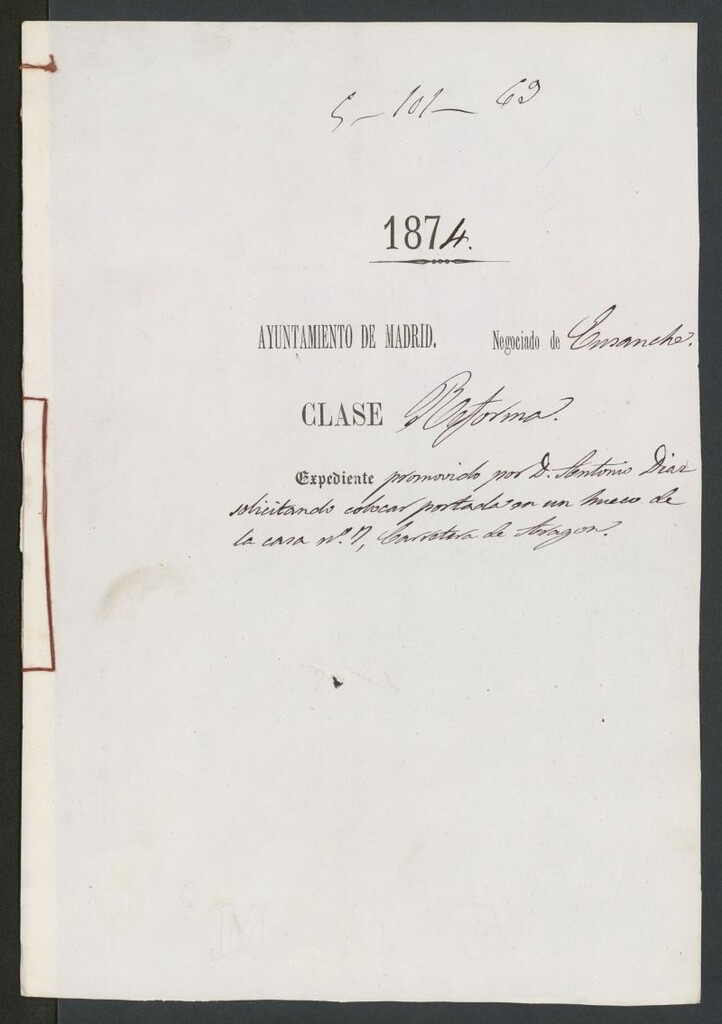 5-101-63
1874.
AYUNTAMIENTO DE MADRID. Negociado de Ensanche.
CLASE Reforma.
Expediente promovido por D. Antonio Diaz
solicitando colocar portada en un hueco de
la casa nº. 7, Carretera de Aragon.